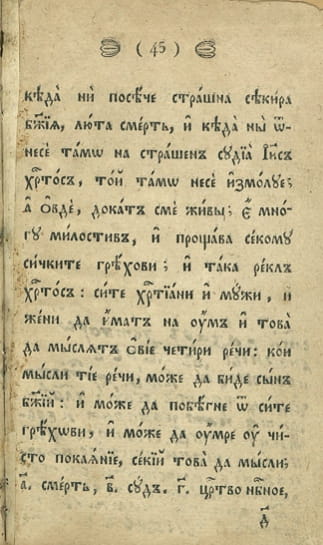 ( 45 )
кѣда̀ ни̏ посѣ́че стра́шна сѣки́ра
бж҃їѧ, лю́та сме́рть, и҆ кѣда̀ ны̏ ѿ-
несѐ та́мѡ на стра́шенъ сꙋдїѧ̀ І҆и҃съ
хрⷭ҇то́съ, то́й та́мѡ несѐ и҆змо́лꙋе;
а҆ ѻ҆́вдѣ, дока́тъ смѐ жи́вы; Е҆́ мно́-
гꙋ ми́лостивъ, и҆ проща́ва се́комꙋ
си́чките грѣ́хови; и҆ та́ка ре́клъ
хрⷭ҇то́съ: си́те хрⷭ҇тїа́ни и҆ мꙋ́жи, и҆
же́ни да и҆́матъ на ᲂу҆́мъ и҆ това̀
да мы́слѧтъ ѻ҆́вїе чети́ри ре́чи: ко́и
мы́сли тїе ре́чи, мо́же да би́де сы́нъ
бж҃їй: и҆ мо́же да побѣ́гне ѿ си́те
грѣ́хѡви, и҆ мо́же да ᲂу҆́мре ᲂу҆ чи́-
сто покаѧ́нїе, се́кїй това̀ да мы́сли;
а҃. сме́рть, в҃. сꙋ́дъ. г҃. црⷭ҇тво нбⷭ҇ное,
д҃